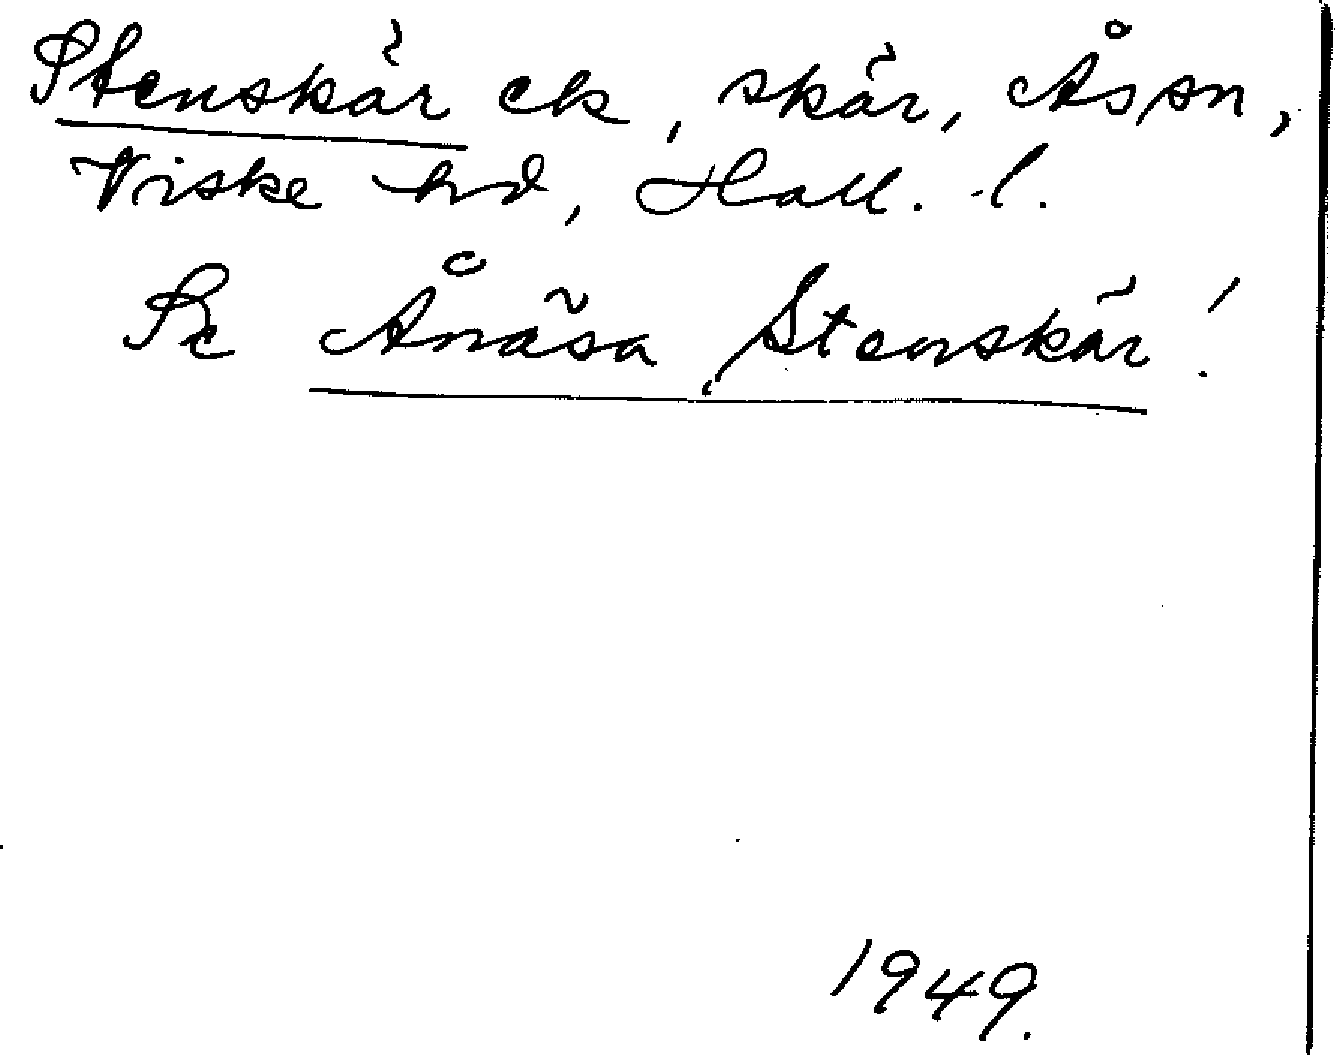 Stenskär ek, skär, Ås sn,
Viske hd, Hall. l.
Se Ånäsa Stenskär!
1949.